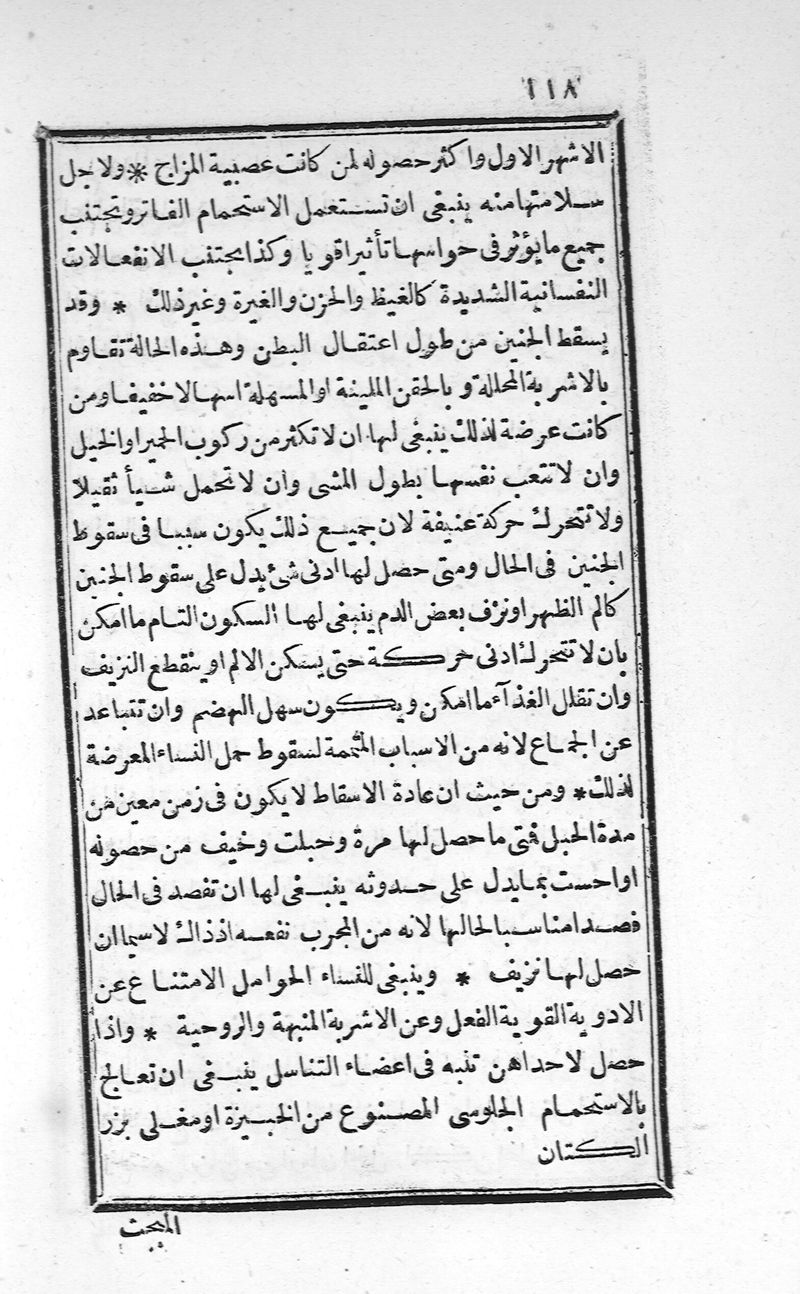 ١١٨
الاشهر الاول واكثر حصوله لمن كانت عصبية المزاج * ولاجل
سلامتها منه ينبغى ان تستعمل الاستحمام الفاتر وتجتنب
جميع مايؤثر فى حواسها تأثيرا قويا وكذا يجتنب الانفعالات
النفسانية الشديدة كالغيظ والحزن والغيرة وغير ذلك * وقد
يسقط الجنين من طول اعتقال البطن وهذه الحالة تقاوم
بالاشربة المحللة وبالحقن الملينة او المسهلة اسهالا خفيفا ومن
كانت عرضة لذلك ينبغى لها ان لا تكثر من ركوب الحمير او الخيل
وان لا تتعب نفسها بطول المشى وان لا تحمل شيأ ثقيلا
ولا تتحرك حركة عنيفة لان جميع ذلك يكون سببا فى سقوط
الجنين فى الحال ومتى حصل لها ادنى شئ يدل على سقوط الجنين
كالم الظهر او نزف بعض الدم ينبغى لها السكون التام ما امكن
بان لا تتحرك ادنى حركة حتى يسكن الالم او ينقطع النزيف
وان تقلل الغذآء ما امكن ويكون سهل الهضم وان تتباعد
عن الجماع لانه من الاسباب المتممة لسقوط حمل النساء المعرضة
لذلك * ومن حيث ان عادة الاسقاط لا يكون فى زمن معين من
مدة الحبل فمتى ما حصل لها مرة وحبلت وخيف من حصوله
او احست بما يدل على حدوثه ينبغى لها ان تفصد فى الحال
فصدا مناسبا لحالها لانه من المجرب نفعه اذ ذاك لاسيما ان
حصل لها نزيف * وينبغى للنساء الحوامل الامتناع عن
الادوية القوية الفعل وعن الاشربة المنبهة والروحية * واذا
حصل لاحداهن تنبه فى اعضاء التناسل ينبغى ان تعالج
بالاستحمام الجلوسى المصنوع من الخبيزة او مغلى بزر
الكتان
المبحث